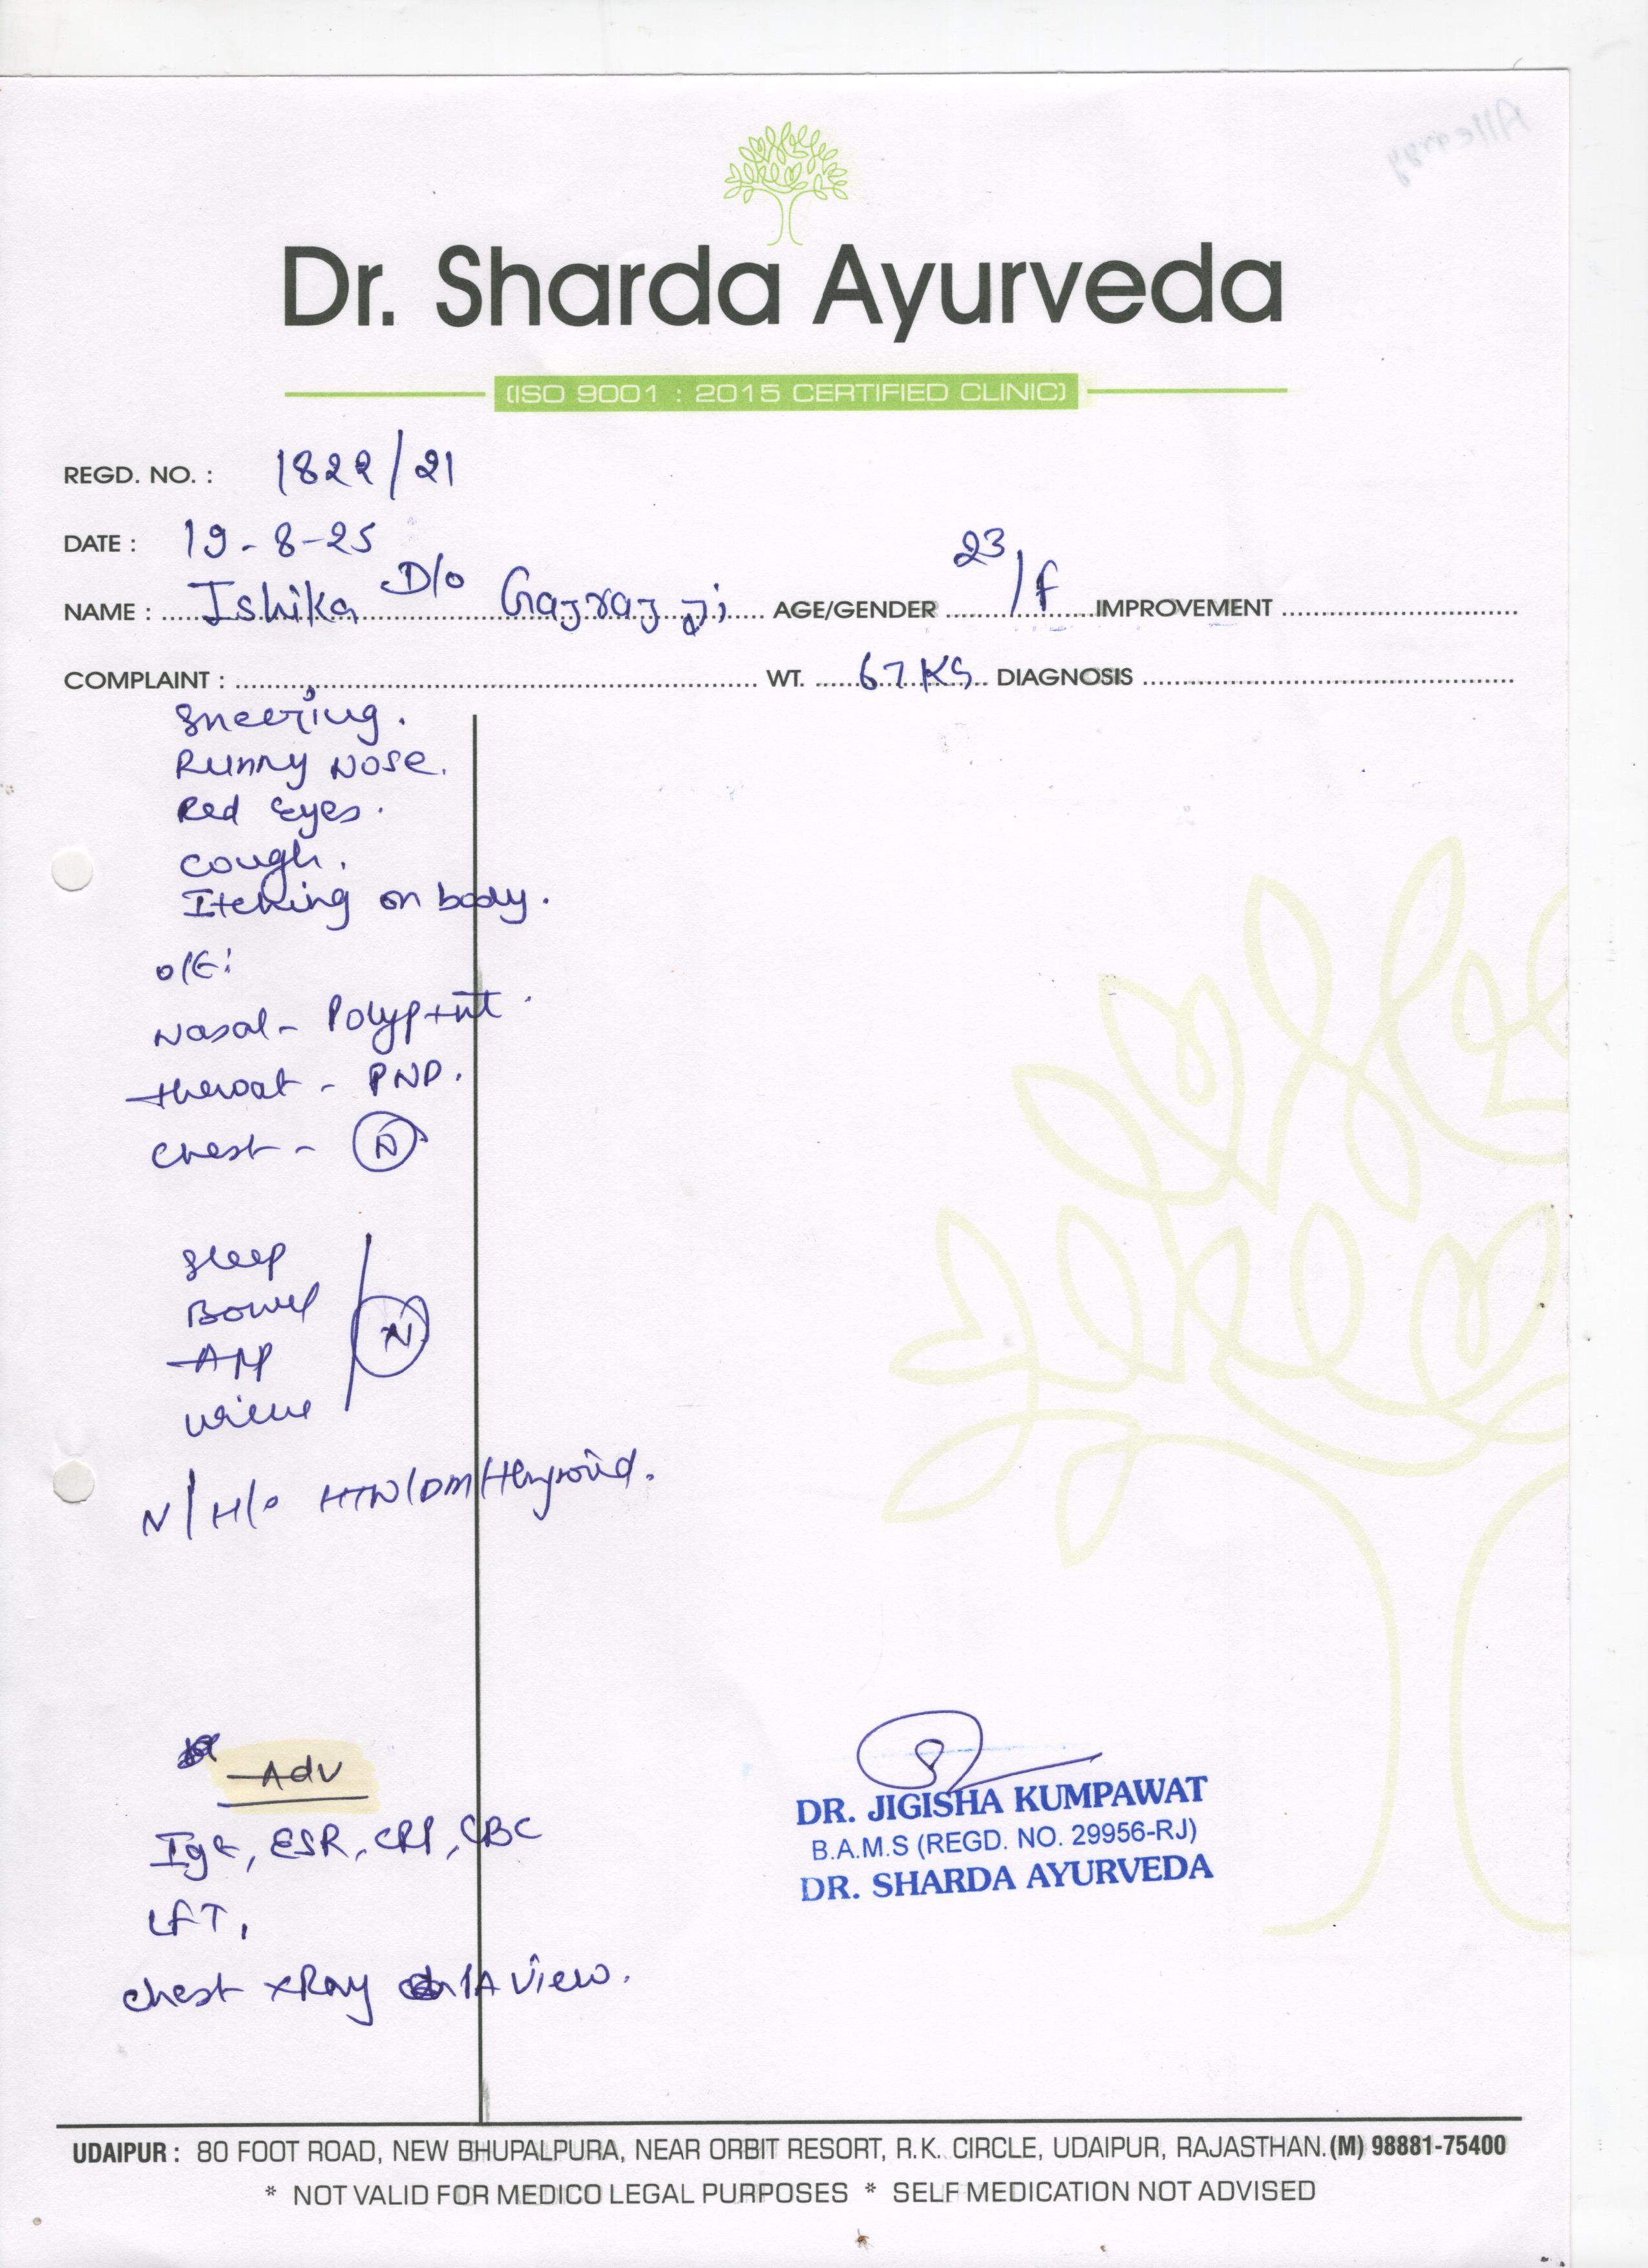 Allergy
Dr. Sharda Ayurveda
(ISO 9001 : 2015 CERTIFIED CLINIC)
REGD. NO. : 1822/21
DATE : 19-8-25
NAME : Ishika D/o Gajraj ji AGE/GENDER 23/F IMPROVEMENT
COMPLAINT : WT. 67 KG DIAGNOSIS
Sneezing.
Runny Nose.
Red Eyes.
Cough.
Itching on body.
O/E:
Nasal - Polyp
Throat - PND.
Chest - N
Sleep
Bowel
App N
Urine
N/H/o HTN/DM/Thyroid.
Adv
IgE, ESR, CRP, CBC
LFT,
Chest xRay PA View.
DR. JIGISHA KUMPAWAT
B.A.M.S (REGD. NO. 29956-RJ)
DR. SHARDA AYURVEDA
UDAIPUR : 80 FOOT ROAD, NEW BHUPALPURA, NEAR ORBIT RESORT, R.K. CIRCLE, UDAIPUR, RAJASTHAN. (M) 98881-75400
* NOT VALID FOR MEDICO LEGAL PURPOSES * SELF MEDICATION NOT ADVISED